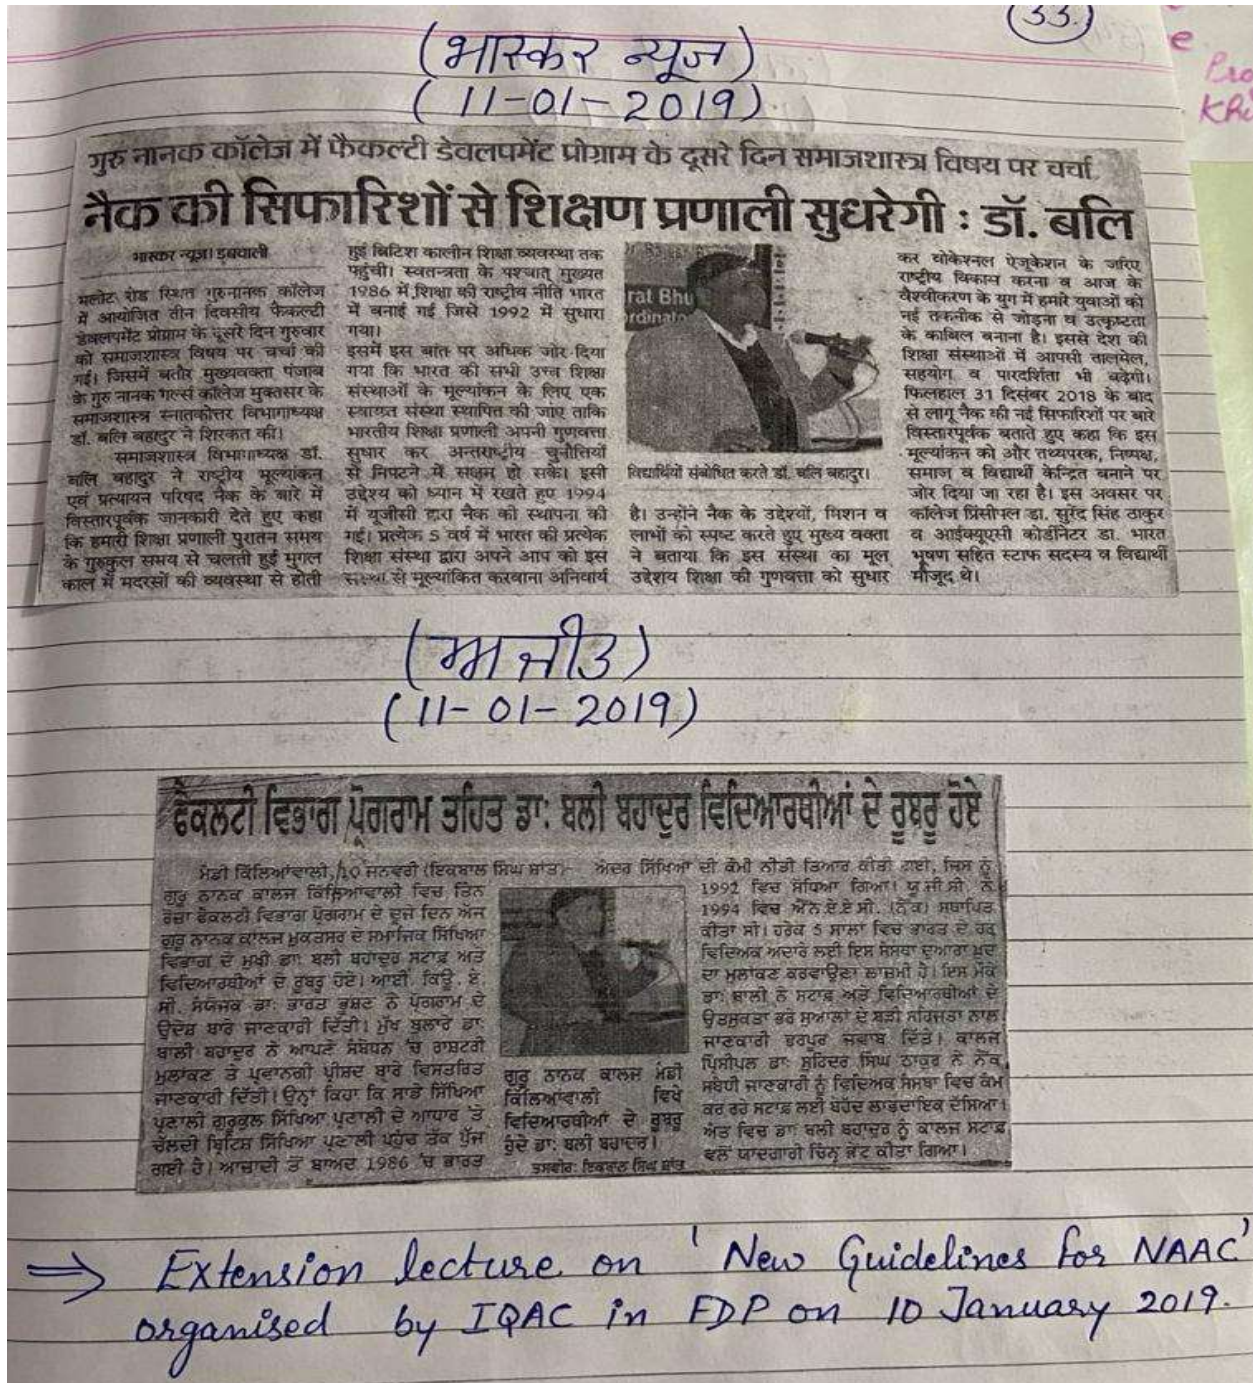 (33.)
e
KRi
(भास्कर न्यूज)
(11-01-2019)
गुरु नानक कॉलेज में फैकल्टी डेवलपमेंट प्रोग्राम के दूसरे दिन समाजशास्त्र विषय पर चर्चा
नैक की सिफारिशों से शिक्षण प्रणाली सुधरेगी : डॉ. बलि
भास्कर न्यूज। डबवाली
मलोट रोड स्थित गुरुनानक कॉलेज
में आयोजित तीन दिवसीय फैकल्टी
डेवलपमेंट प्रोग्राम के दूसरे दिन गुरुवार
को समाजशास्त्र विषय पर चर्चा की
गई। जिसमें बतौर मुख्यवक्ता पंजाब
के गुरु नानक गर्ल्स कॉलेज मुक्तसर के
समाजशास्त्र स्नातकोत्तर विभागाध्यक्ष
डॉ. बलि बहादुर ने शिरकत की।
समाजशास्त्र विभागाध्यक्ष डॉ.
बलि बहादुर ने राष्ट्रीय मूल्यांकन
एवं प्रत्यायन परिषद नैक के बारे में
विस्तारपूर्वक जानकारी देते हुए कहा
कि हमारी शिक्षा प्रणाली पुरातन समय
के गुरुकुल समय से चलती हुई मुगल
काल में मदरसों की व्यवस्था से होती
हुई ब्रिटिश कालीन शिक्षा व्यवस्था तक
पहुंची। स्वतन्त्रता के पश्चात् मुख्यत
1986 में शिक्षा की राष्ट्रीय नीति भारत
में बनाई गई जिसे 1992 में सुधारा
गया।
इसमें इस बात पर अधिक जोर दिया
गया कि भारत की सभी उच्च शिक्षा
संस्थाओं के मूल्यांकन के लिए एक
स्वायत्त संस्था स्थापित की जाए ताकि
भारतीय शिक्षा प्रणाली अपनी गुणवत्ता
सुधार कर अन्तराष्ट्रीय चुनौतियों
से निपटने में सक्षम हो सके। इसी
उद्देश्य को ध्यान में रखते हुए 1994
में यूजीसी द्वारा नैक की स्थापना की
गई। प्रत्येक 5 वर्ष में भारत की प्रत्येक
शिक्षा संस्था द्वारा अपने आप को इस
संस्था से मूल्यांकित करवाना अनिवार्य
rat Bhu
ordinato
विद्यार्थियों संबोधित करते डॉ. बलि बहादुर।
है। उन्होंने नैक के उद्देश्यों, मिशन व
लाभों को स्पष्ट करते हुए मुख्य वक्ता
ने बताया कि इस संस्था का मूल
उद्देशय शिक्षा की गुणवत्ता को सुधार
कर वोकेश्नल ऐजूकेशन के जरिए
राष्ट्रीय विकास करना व आज के
वैश्वीकरण के युग में हमारे युवाओं को
नई तकनीक से जोड़ना व उत्कृष्टता
के काबिल बनाना है। इससे देश की
शिक्षा संस्थाओं में आपसी तालमेल,
सहयोग व पारदर्शिता भी बढ़ेगी।
फिलहाल 31 दिसंबर 2018 के बाद
से लागू नैक की नई सिफारिशों पर बारे
विस्तारपूर्वक बताते हुए कहा कि इस
मूल्यांकन को और तथ्यपरक, निष्पक्ष,
समाज व विद्यार्थी केन्द्रित बनाने पर
जोर दिया जा रहा है। इस अवसर पर
कॉलेज प्रिंसीपल डा. सुरेंद्र सिंह ठाकुर
व आईक्यूएसी कोर्डीनेटर डा. भारत
भूषण सहित स्टाफ सदस्य व विद्यार्थी
मौजूद थे।
(ਅਜੀਤ)
(11-01-2019)
ਫੈਕਲਟੀ ਵਿਭਾਗ ਪ੍ਰੋਗਰਾਮ ਤਹਿਤ ਡਾ: ਬਲੀ ਬਹਾਦੁਰ ਵਿਦਿਆਰਥੀਆਂ ਦੇ ਰੂਬਰੂ ਹੋਏ
ਮੰਡੀ ਕਿੱਲਿਆਂਵਾਲੀ, 10 ਜਨਵਰੀ (ਇਕਬਾਲ ਸਿੰਘ ਸ਼ਾਂਤ)-
ਗੁਰੂ ਨਾਨਕ ਕਾਲਜ ਕਿੱਲਿਆਂਵਾਲੀ ਵਿਚ ਤਿੰਨ
ਰੋਜ਼ਾ ਫੈਕਲਟੀ ਵਿਭਾਗ ਪ੍ਰੋਗਰਾਮ ਦੇ ਦੂਜੇ ਦਿਨ ਅੱਜ
ਗੁਰੂ ਨਾਨਕ ਕਾਲਜ ਮੁਕਤਸਰ ਦੇ ਸਮਾਜਿਕ ਸਿੱਖਿਆ
ਵਿਭਾਗ ਦੇ ਮੁਖੀ ਡਾ: ਬਲੀ ਬਹਾਦੁਰ ਸਟਾਫ਼ ਅਤੇ
ਵਿਦਿਆਰਥੀਆਂ ਦੇ ਰੂਬਰੂ ਹੋਏ। ਆਈ. ਕਿਊ. ਏ.
ਸੀ. ਸੰਯੋਜਕ ਡਾ: ਭਾਰਤ ਭੂਸ਼ਣ ਨੇ ਪ੍ਰੋਗਰਾਮ ਦੇ
ਉਦੇਸ਼ ਬਾਰੇ ਜਾਣਕਾਰੀ ਦਿੱਤੀ। ਮੁੱਖ ਬੁਲਾਰੇ ਡਾ:
ਬਾਲੀ ਬਹਾਦੁਰ ਨੇ ਆਪਣੇ ਸੰਬੋਧਨ 'ਚ ਰਾਸ਼ਟਰੀ
ਮੁਲਾਂਕਣ ਤੇ ਪ੍ਰਵਾਨਗੀ ਪ੍ਰੀਸ਼ਦ ਬਾਰੇ ਵਿਸਤਰਿਤ
ਜਾਣਕਾਰੀ ਦਿੱਤੀ। ਉਨ੍ਹਾਂ ਕਿਹਾ ਕਿ ਸਾਡੇ ਸਿੱਖਿਆ
ਪ੍ਰਣਾਲੀ ਗੁਰੂਕੁਲ ਸਿੱਖਿਆ ਪ੍ਰਣਾਲੀ ਦੇ ਆਧਾਰ 'ਤੇ
ਚੱਲਦੀ ਬ੍ਰਿਟਿਸ਼ ਸਿੱਖਿਆ ਪ੍ਰਣਾਲੀ ਪਹੁੰਚ ਤੱਕ ਪੁੱਜ
ਗਈ ਹੈ। ਆਜ਼ਾਦੀ ਤੋਂ ਬਾਅਦ 1986 'ਚ ਭਾਰਤ
ਗੁਰੂ ਨਾਨਕ ਕਾਲਜ ਮੰਡੀ
ਕਿੱਲਿਆਂਵਾਲੀ ਵਿਖੇ
ਵਿਦਿਆਰਥੀਆਂ ਦੇ ਰੂਬਰੂ
ਹੁੰਦੇ ਡਾ: ਬਲੀ ਬਹਾਦਰ।
ਤਸਵੀਰ: ਇਕਬਾਲ ਸਿੰਘ ਸ਼ਾਂਤ
ਅੰਦਰ ਸਿੱਖਿਆ ਦੀ ਕੌਮੀ ਨੀਤੀ ਤਿਆਰ ਕੀਤੀ ਗਈ, ਜਿਸ ਨੂੰ
1992 ਵਿਚ ਸੋਧਿਆ ਗਿਆ। ਯੂ.ਜੀ.ਸੀ. ਨੇ
1994 ਵਿਚ ਐੱਨ.ਏ.ਏ.ਸੀ. (ਨੈਕ) ਸਥਾਪਿਤ
ਕੀਤਾ ਸੀ। ਹਰੇਕ 5 ਸਾਲਾਂ ਵਿਚ ਭਾਰਤ ਦੇ ਹਰ
ਵਿਦਿਅਕ ਅਦਾਰੇ ਲਈ ਇਸ ਸੰਸਥਾ ਦੁਆਰਾ ਖ਼ੁਦ
ਦਾ ਮੁਲਾਂਕਣ ਕਰਵਾਉਣਾ ਲਾਜ਼ਮੀ ਹੈ। ਇਸ ਮੌਕੇ
ਡਾ: ਬਾਲੀ ਨੇ ਸਟਾਫ਼ ਅਤੇ ਵਿਦਿਆਰਥੀਆਂ ਦੇ
ਉਤਸੁਕਤਾ ਭਰੇ ਸੁਆਲਾਂ ਦੇ ਬੜੀ ਸਹਿਜਤਾ ਨਾਲ
ਜਾਣਕਾਰੀ ਭਰਪੂਰ ਜਵਾਬ ਦਿੱਤੇ। ਕਾਲਜ
ਪ੍ਰਿੰਸੀਪਲ ਡਾ: ਸੁਰਿੰਦਰ ਸਿੰਘ ਠਾਕੁਰ ਨੇ ਨੈਕ
ਸਬੰਧੀ ਜਾਣਕਾਰੀ ਨੂੰ ਵਿਦਿਅਕ ਸੰਸਥਾ ਵਿਚ ਕੰਮ
ਕਰ ਰਹੇ ਸਟਾਫ਼ ਲਈ ਬੇਹੱਦ ਲਾਭਦਾਇਕ ਦੱਸਿਆ।
ਅੰਤ ਵਿਚ ਡਾ: ਬਲੀ ਬਹਾਦੁਰ ਨੂੰ ਕਾਲਜ ਸਟਾਫ਼
ਵਲੋਂ ਯਾਦਗਾਰੀ ਚਿੰਨ੍ਹ ਭੇਟ ਕੀਤਾ ਗਿਆ।
⇒ Extension lecture on 'New Guidelines for NAAC'
organised by IQAC in FDP on 10 January 2019.